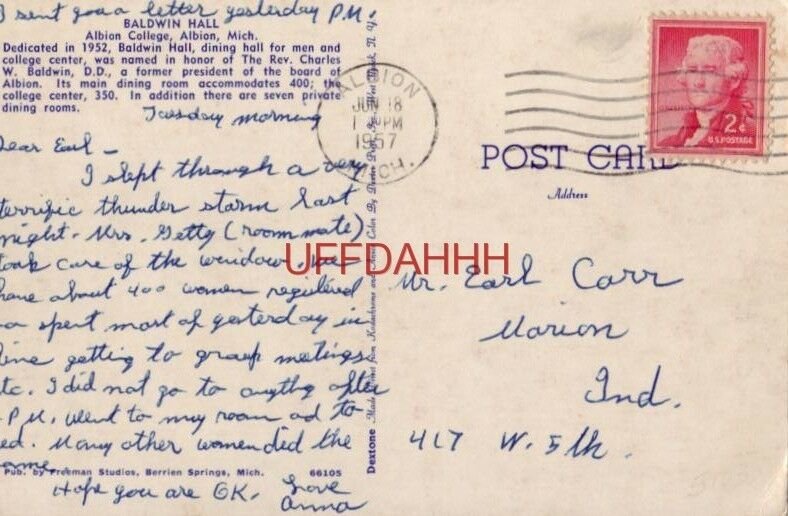 I sent you a letter yesterday P.M.
BALDWIN HALL
Albion College, Albion, Mich.
Dedicated in 1952, Baldwin Hall, dining hall for men and
college center, was named in honor of The Rev. Charles
W. Baldwin, D.D., a former president of the board of
Albion. Its main dining room accommodates 400; the
college center, 350. In addition there are seven private
dining rooms.
Tuesday morning
Dear Earl –
I slept through a very
terrific thunder storm last
night. Mrs. Getty (room mate)
took care of the window. We
have about 400 women registered
spent most of yesterday in
line getting to group meetings
etc. I did not go to anythg after
P.M. Went to my room ad to
bed. Many other women did the
same.
Pub. by Freeman Studios, Berrien Springs, Mich. 66105
Hope you are OK. Love
Anna
Dextone Made Direct from Kodachrome and Ansco Color By Dexter Press, Inc., West Nyack, N. Y.
ALBION
JUN 18
PM
1957
MICH.
2¢
U.S. POSTAGE
POST CARD
Address
UFFDAHHH
Mr. Earl Carr
Marion
Ind.
417 W. 5th.